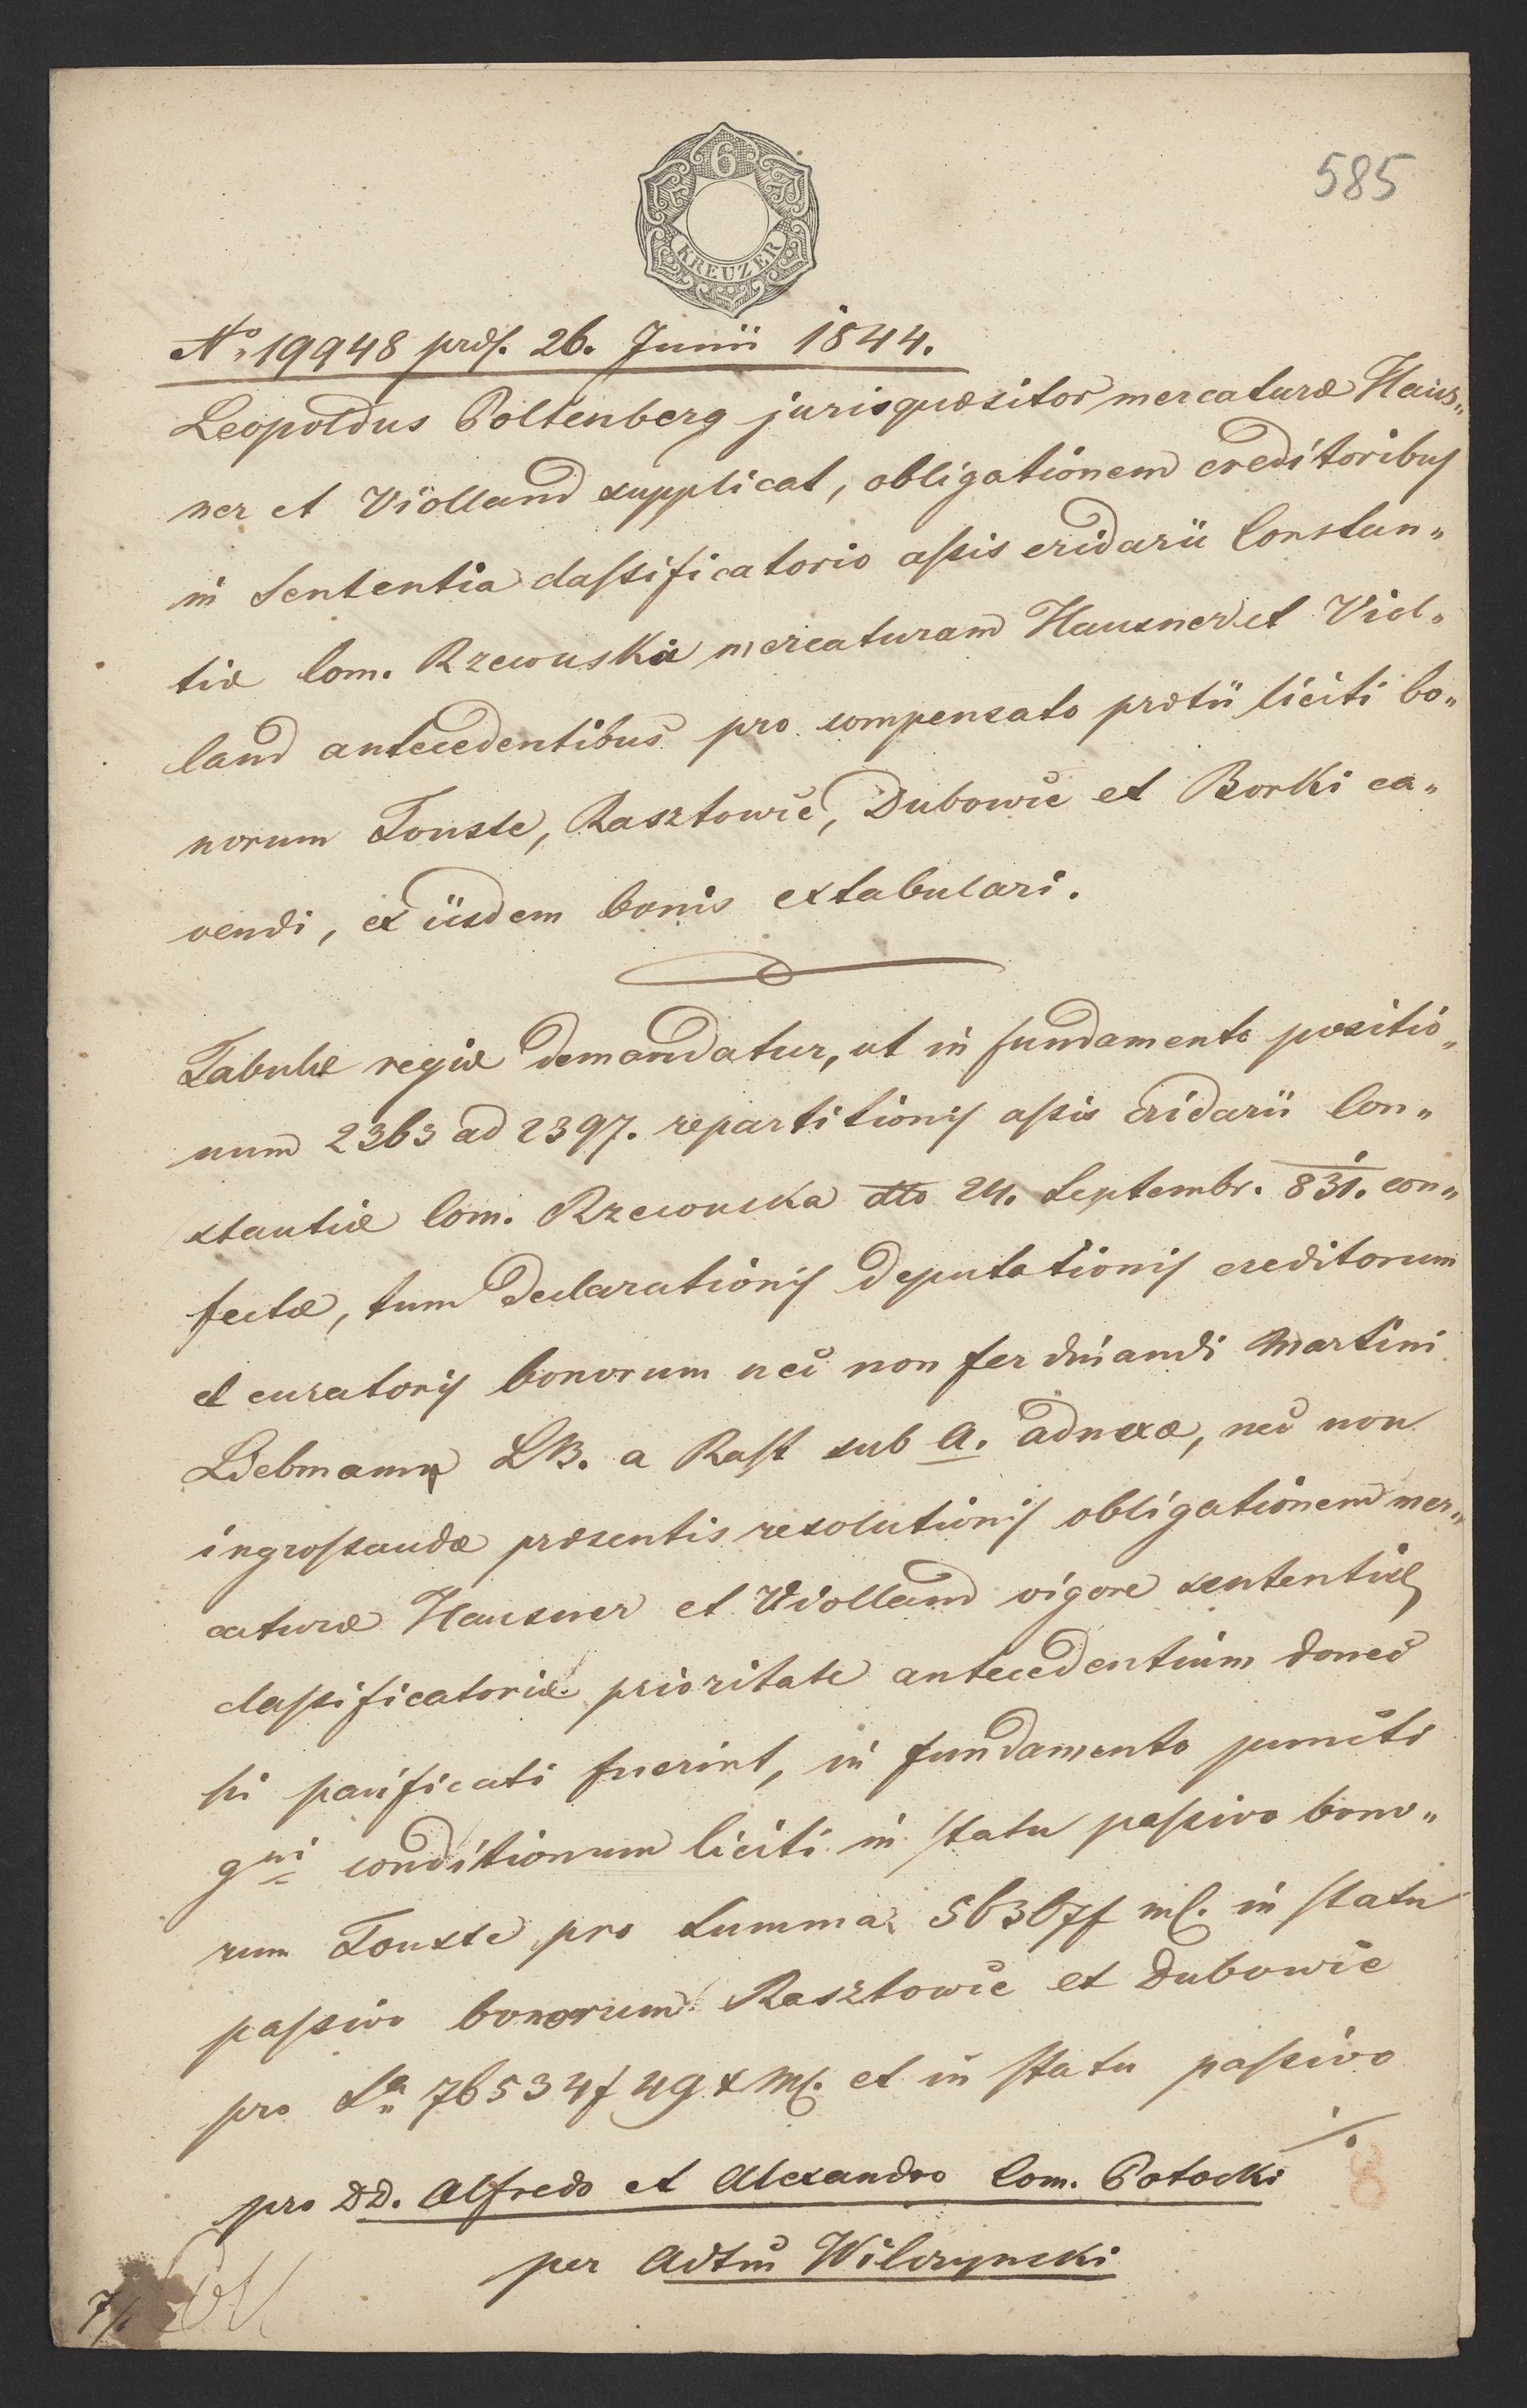 6
KREUZER
585
No 19948 præs. 26. Junii 1844.
Leopoldus Poltenberg jurisquæsitor mercaturæ Haus„
ner et Violland supplicat, obligationem creditoribus
in sententia classificatorio assis cridarii Constan„
tiæ Com. Rzewuska mercaturam Hausner et Viol„
land antecedentibus pro compensato prætii liciti bo„
norum Touste, Rasztowce, Dubowce et Borki ca„
vendi, ex iisdem bonis extabulari.
Tabulæ regiæ demandatur, ut in fundamento positio„
num 2363 ad 2397. repartitionis assis cridarii Con„
stantiæ Com. Rzewuska dto 24. Septembr. 831. con„
fectæ, tum declarationis deputationis creditorum
et curatoris bonorum nec non Ferdinandi Martini
Liebmann LB. a Rast sub A. adnexæ, nec non
ingrossandæ præsentis resolutionis obligationem mer„
caturæ Hausner et Violland vigore sententiæ
classificatoriæ prioritate antecedentium donec
hi pacificati fuerint, in fundamento puncti
gni conditionum liciti in statu passivo bono„
rum Touste pro summa 56307f mC. in statu
passivo bonorum Rasztowce et Dubowce
pro Sa 76534f 49 x MC. et in statu passivo
./.
pro DD. Alfredo et Alexandro Com. Potocki
per Adtum Wilczynski
7/